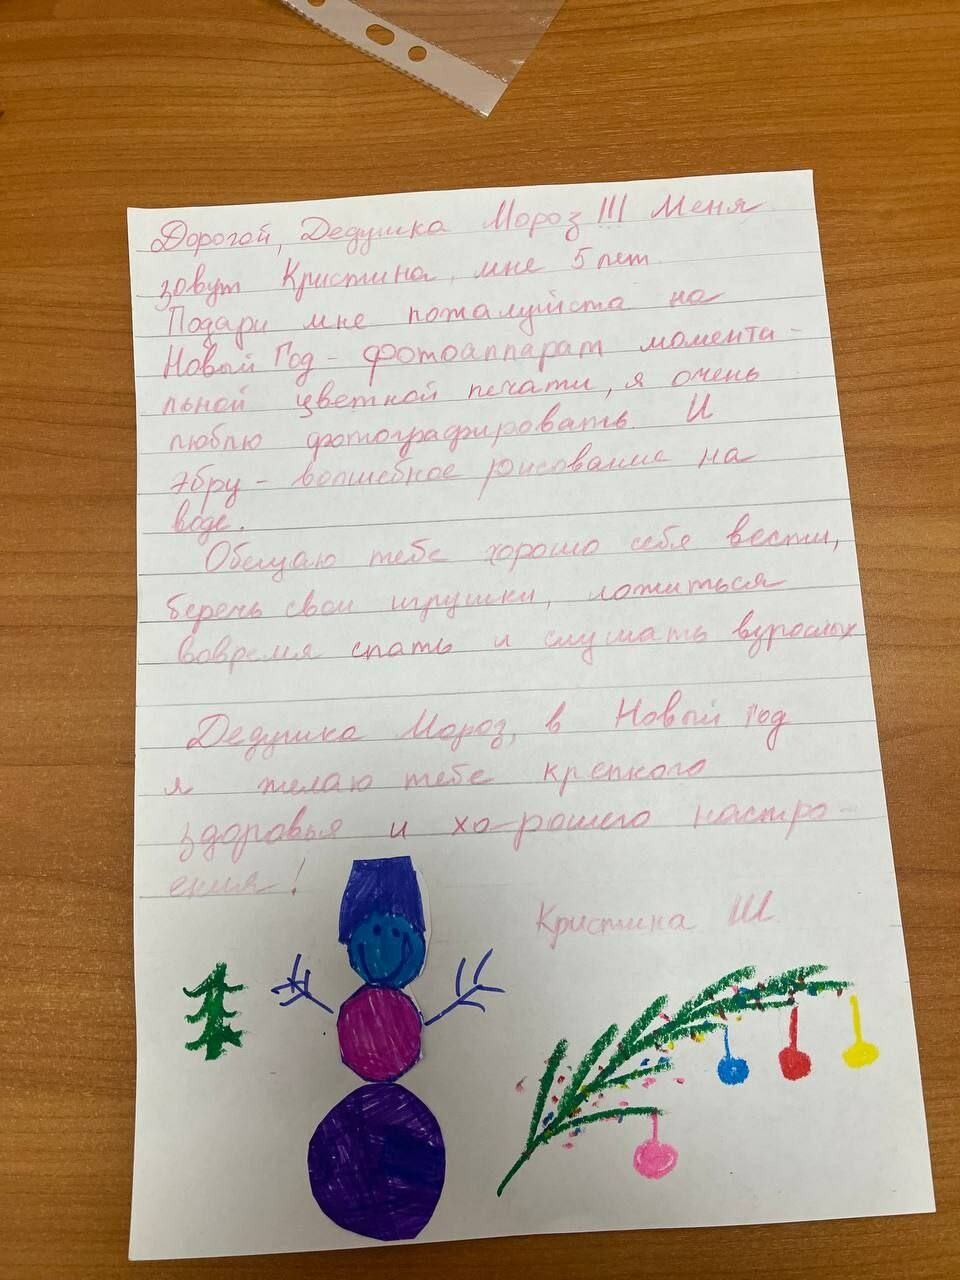 Дорогой, Дедушка Мороз!!! Меня
зовут Кристина, мне 5 лет.
Подари мне пожалуйста на
Новый Год - фотоаппарат момента-
льной цветной печати, я очень
люблю фотографировать. И
эбру - волшебное рисование на
воде.
Обещаю тебе хорошо себя вести,
беречь свои игрушки, ложиться
вовремя спать и слушать взрослых
Дедушка Мороз, в Новый год
я желаю тебе крепкого
здоровья и хо-рошего настро-
ения!
Кристина Ш.